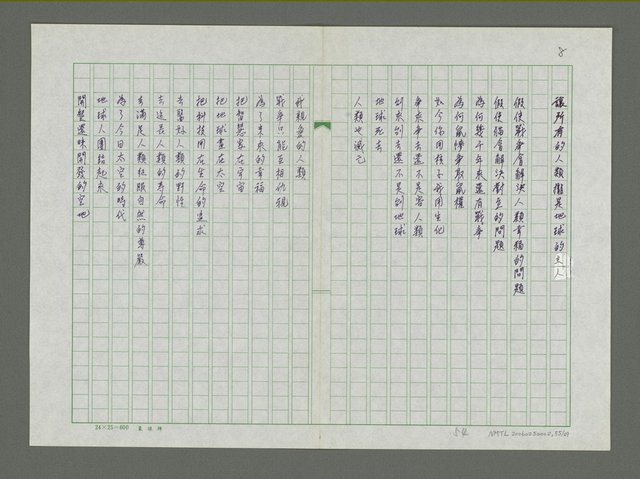 8
讓所有的人類僅是地球的主人
假使戰爭會解決人類幸福的問題
假使猜會解決對立的問題
為何幾千年來還有戰爭
為何氣憤爭取氣權
如今你用核子我用生化
爭來爭去還不是害人類
刮來刮去還不是刮地球
地球死去
人類也滅亡
我親愛的人類
戰爭只能互相仇視
為了未來的幸福
把智慧放在宇宙
把地球畫在太空
把科技用在生命的追求
去醫好人類的野性
去延長人類的壽命
去滿足人類征服自然的尊嚴
為了今日太空的時代
地球人團結起來
開墾這味開發的空地
24×25=600
54
NMTL 20060250002,55/69